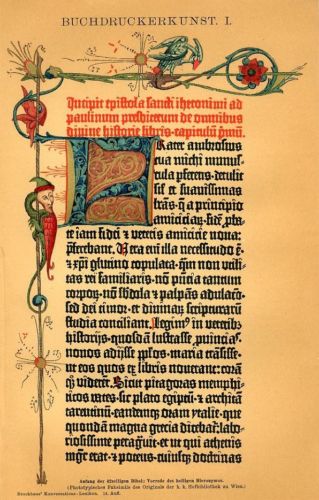 BUCHDRUCKERKUNST. I.
Incipit epistola sancti iheronimi ad
paulinum presbiterum de omnibus
divine historie libris. capitulū pꝛimū.
Frater ambrosius
tua michi munus-
cula pferens. detulit
sil et suavissimas
lr̄as. q̄ a principio
amiciciaꝝ. fidē pba-
te iam fidei et veteris amicicie nova:
pferebant. Vera enī illa necessitudo ē.
et xp̄i glutino copulata. qm̄ non utili-
tas rei familiaris. nō p̄ncia tantum
corpoꝝ. nō sb̄dola et palpās adulaco.
sed dei timor. et divinaꝝ scripturarū
studia conciliant. Legim⁹ in veterib⁹
historijs. quosdā lustrasse. puīcias.
novos adijsse pp̄los. maria transisse.
ut eos quos ex libris noverant: corā
qꝫ viderēt. Sicut pitagoras memphi-
ticos vates. sic plato egiptū. et archita
tarentinū. eandemqꝫ oram ytalie. que
quondā magna grecia dicebat̄: labo-
riosissime peragravit. et ut qui athenis
mgr̄ erat. et potens. cuiusqꝫ doctrinas
Anfang der 42zeiligen Bibel: Vorrede des heiligen Hieronymus.
(Phototypisches Faksimile des Originals der k. k. Hofbibliothek zu Wien.)
Brockhaus' Konversations-Lexikon. 14. Aufl.